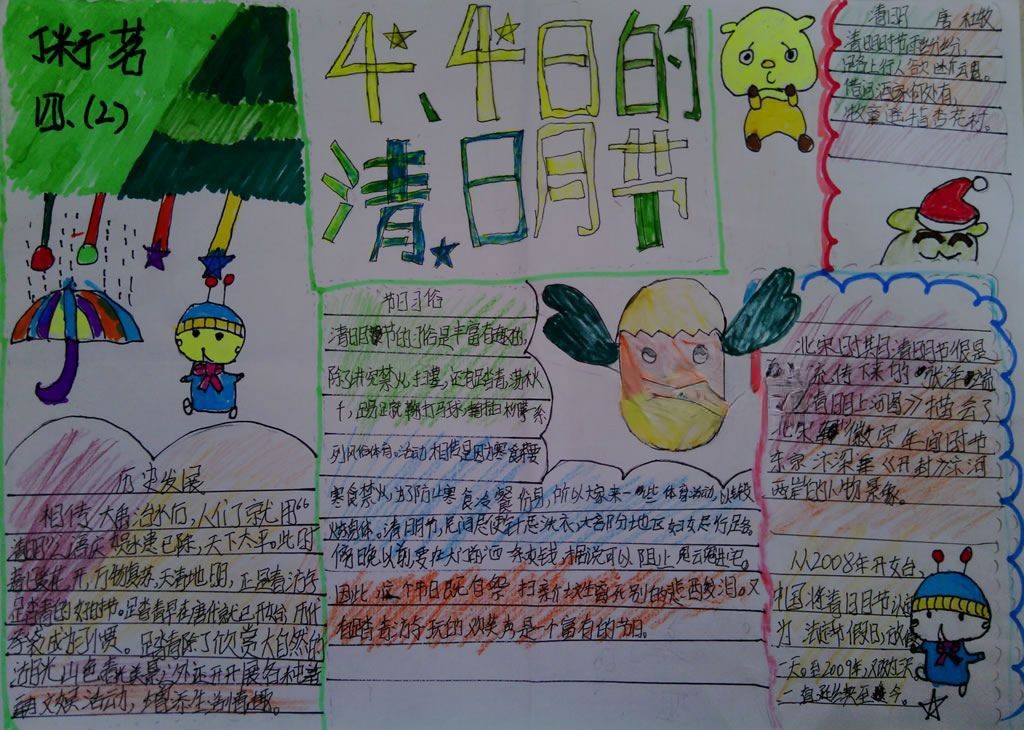 四、(2)
4、4日的
清明节
清明 唐 杜牧
清明时节雨纷纷,
路上行人欲断魂。
借问酒家何处有,
牧童遥指杏花村。
节日习俗
清明节的习俗是丰富有趣的,
除了讲究禁火扫墓,还有踏青、荡秋
千,蹴鞠、打马球、插柳等系
列风俗体育。活动相传是因为寒食节要
寒食禁火,为了防止寒食冷餐伤身,所以大家来一些体育活动,以锻炼
炼身体。清明节,民间忌使针,忌洗衣,大部分地区妇女忌行路。
傍晚以前,要在大门前洒一条灰线,据说可以阻止鬼云魂进宅。
因此,这个节日既有祭扫新坟生离死别的悲酸泪。又
有踏青游玩的欢笑声,是一个富有的节日。
历史发展
相传大禹治水后,人们了就用“
清明”之语庆 娱水患已除,天下太平。此时
春暖花开,万物复苏,天清地明,正是春游
踏青的好时节。踏青早在唐代就已开始,历代
承袭成为习惯。踏青除了欣赏大自然的
湖光山色、春光美景之外,还开开展各种
文娱活动,增添生活情趣。
北宋
流传下来的 张择端
《清明上河图》描绘了
北宋徽宗年间时节,
东京汴梁《开封》汴河
两岸的人物景象。
从2008年开始,
中国将清明节
为 法定假日,放假
一天。至2009年,又改三天
一直延续至今。